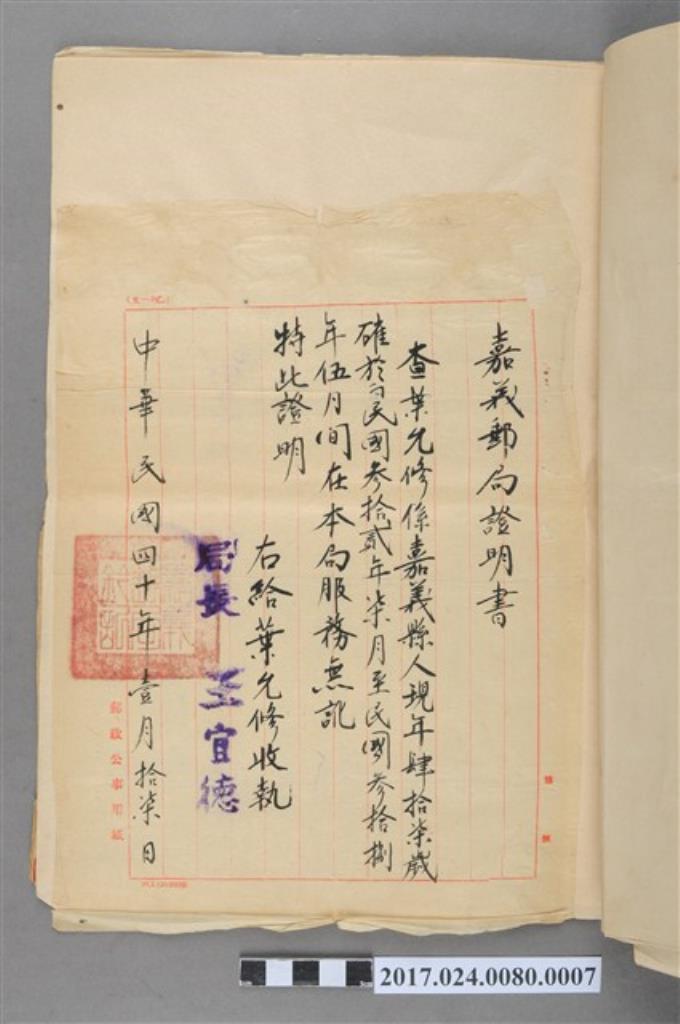 嘉義郵局證明書
查葉允修係嘉義縣人現年肆拾柒歲
確於民國參拾貳年柒月至民國參拾捌
年伍月間在本局服務無訛
特此證明
右給葉允修收執
局長 王宜德
中華民國四十年壹月拾柒日
郵政公事用紙
2017.024.0080.0007